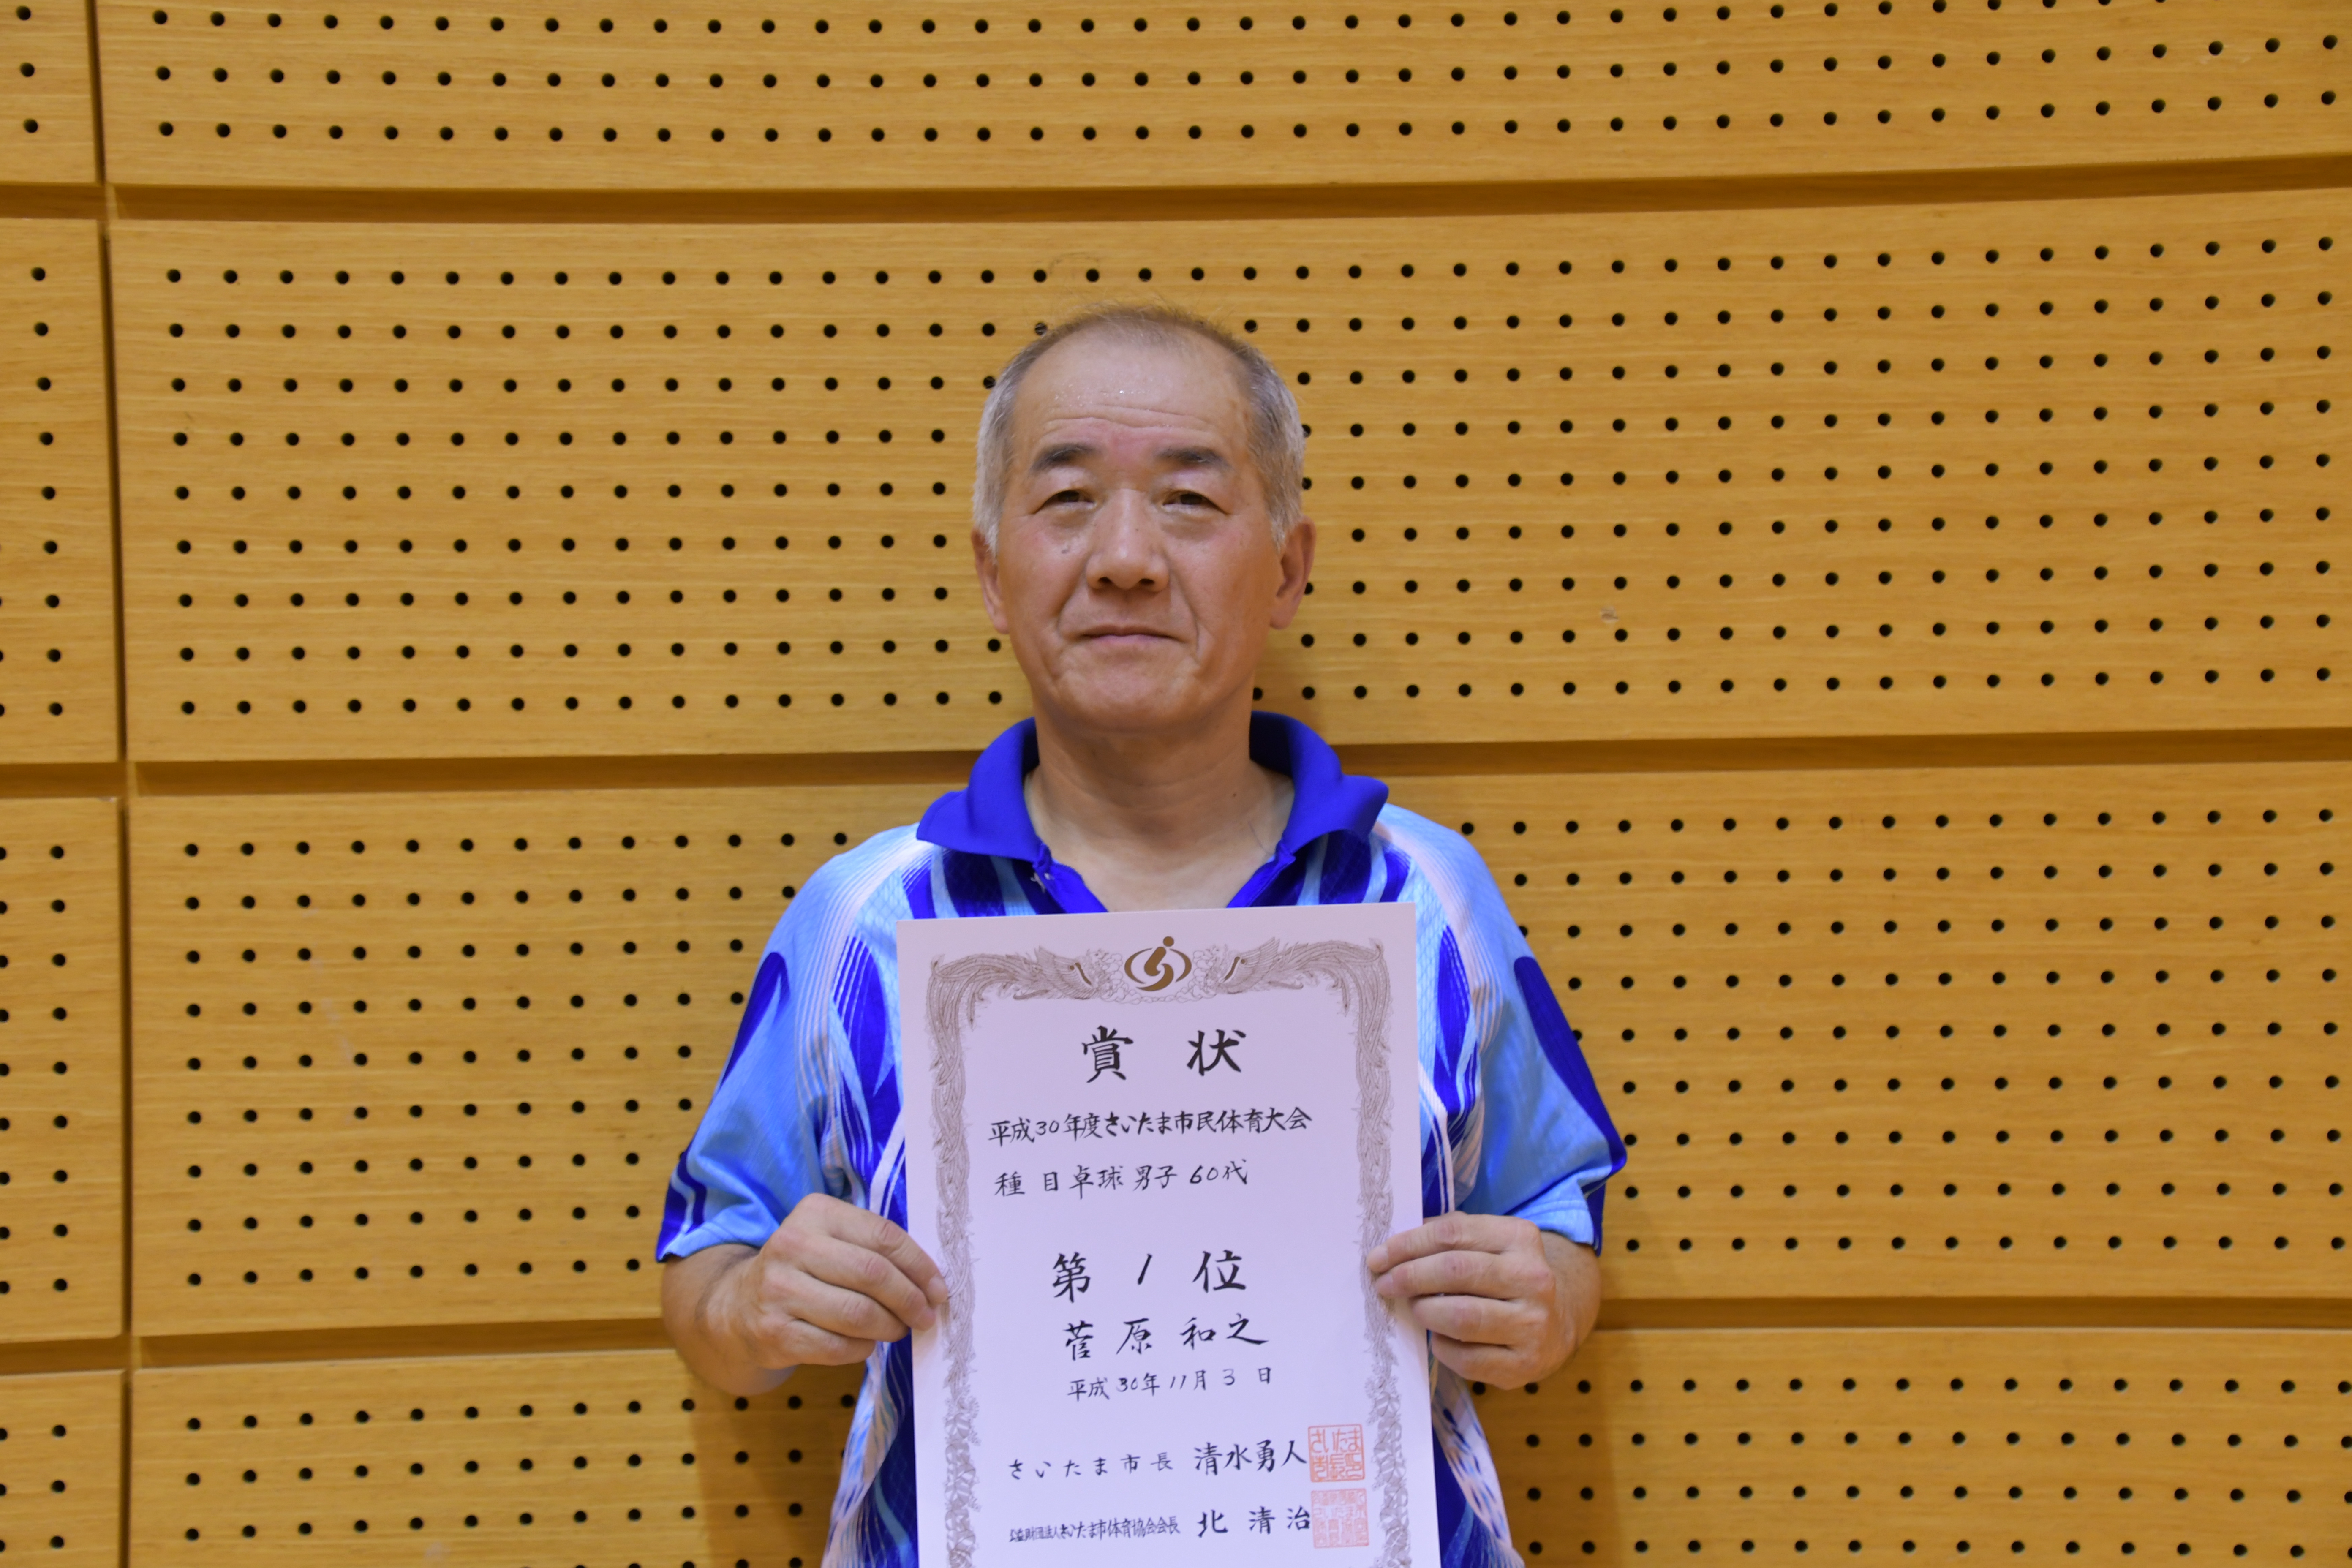 賞状
平成30年度さいたま市民体育大会
種目卓球男子60代
第1位
菅原和之
平成30年11月3日
さいたま市長 清水勇人
公益財団法人さいたま市体育協会会長 北清治